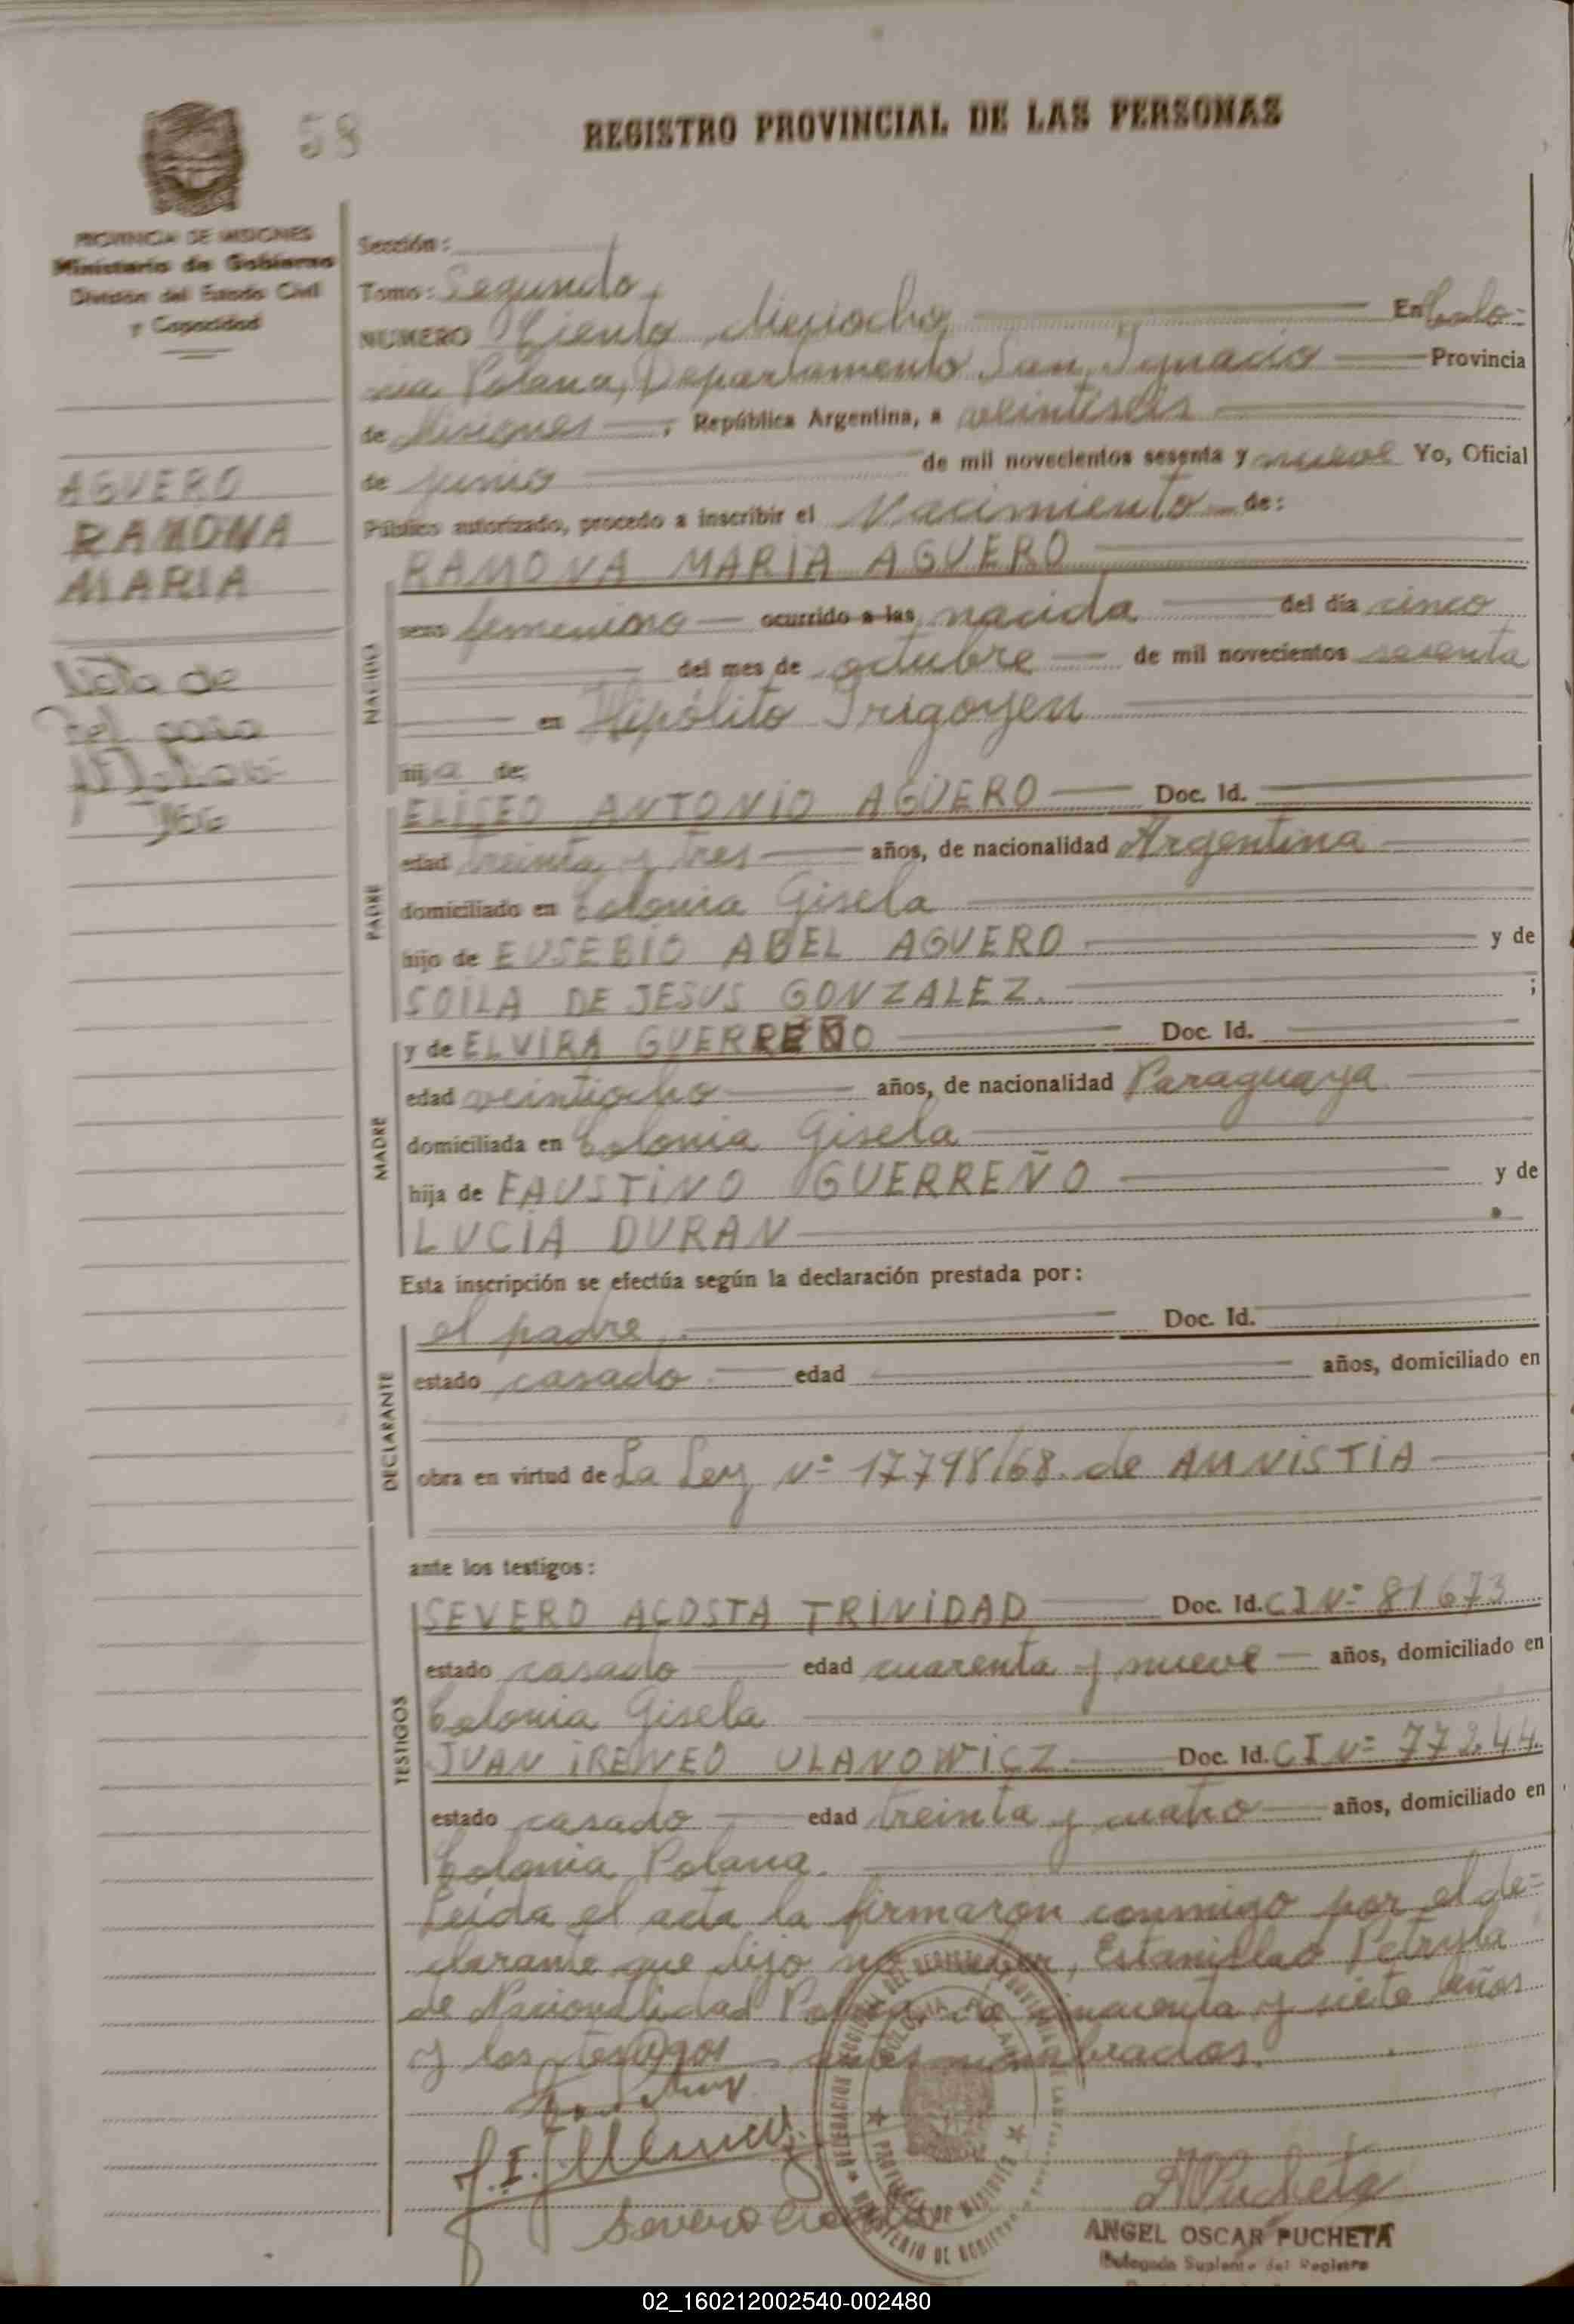 58
REGISTRO PROVINCIAL DE LAS PERSONAS
PROVINCIA DE MISIONES
Ministerio de Gobierno
División del Estado Civil
y Capacidad
Sección:
Tomo: Segundo
NUMERO Ciento dieciocho En Colo=
nia Polana, Departamento San Ignacio Provincia
de Misiones, República Argentina, a veintiseis
de junio de mil novecientos sesenta y nueve Yo, Oficial
Público autorizado, procedo a inscribir el Nacimiento de:
AGUERO
RAMONA
MARIA
Nota de
para
NACIDO
RAMONA MARIA AGUERO
sexo femenino ocurrido a las nacida del día cinco
del mes de octubre de mil novecientos sesenta
en Hipólito Irigoyen
hija de:
PADRE
ELISEO ANTONIO AGÜERO Doc. Id.
edad treinta y tres años, de nacionalidad Argentina
domiciliado en Colonia Gisela
hijo de EUSEBIO ABEL AGUERO y de
SOILA DE JESUS GONZALEZ. ;
MADRE
y de ELVIRA GUERREÑO Doc. Id.
edad veintiocho años, de nacionalidad Paraguaya
domiciliada en Colonia Gisela
hija de FAUSTINO GUERREÑO y de
LUCIA DURAN
Esta inscripción se efectúa según la declaración prestada por:
DECLARANTE
el padre. Doc. Id.
estado casado edad años, domiciliado en
obra en virtud de La Ley Nº 17798/68. de AMNISTIA
ante los testigos:
TESTIGOS
SEVERO ACOSTA TRINIDAD Doc. Id. CI Nº 81673
estado casado edad cuarenta y nueve años, domiciliado en
Colonia Gisela
JUAN IRENEO ULANOWICZ Doc. Id. CI Nº 77244
estado casado edad treinta y cuatro años, domiciliado en
Colonia Polana.
Leída el acta la firmaron conmigo por el de=
clarante que dijo no saber, Estanislao Petryla
de Nacionalidad Polaca de cincuenta y siete años
y los testigos antes nombrados.
Severo
APucheta
ANGEL OSCAR PUCHETA
Delegado Suplente del Registro
02_160212002540-002480